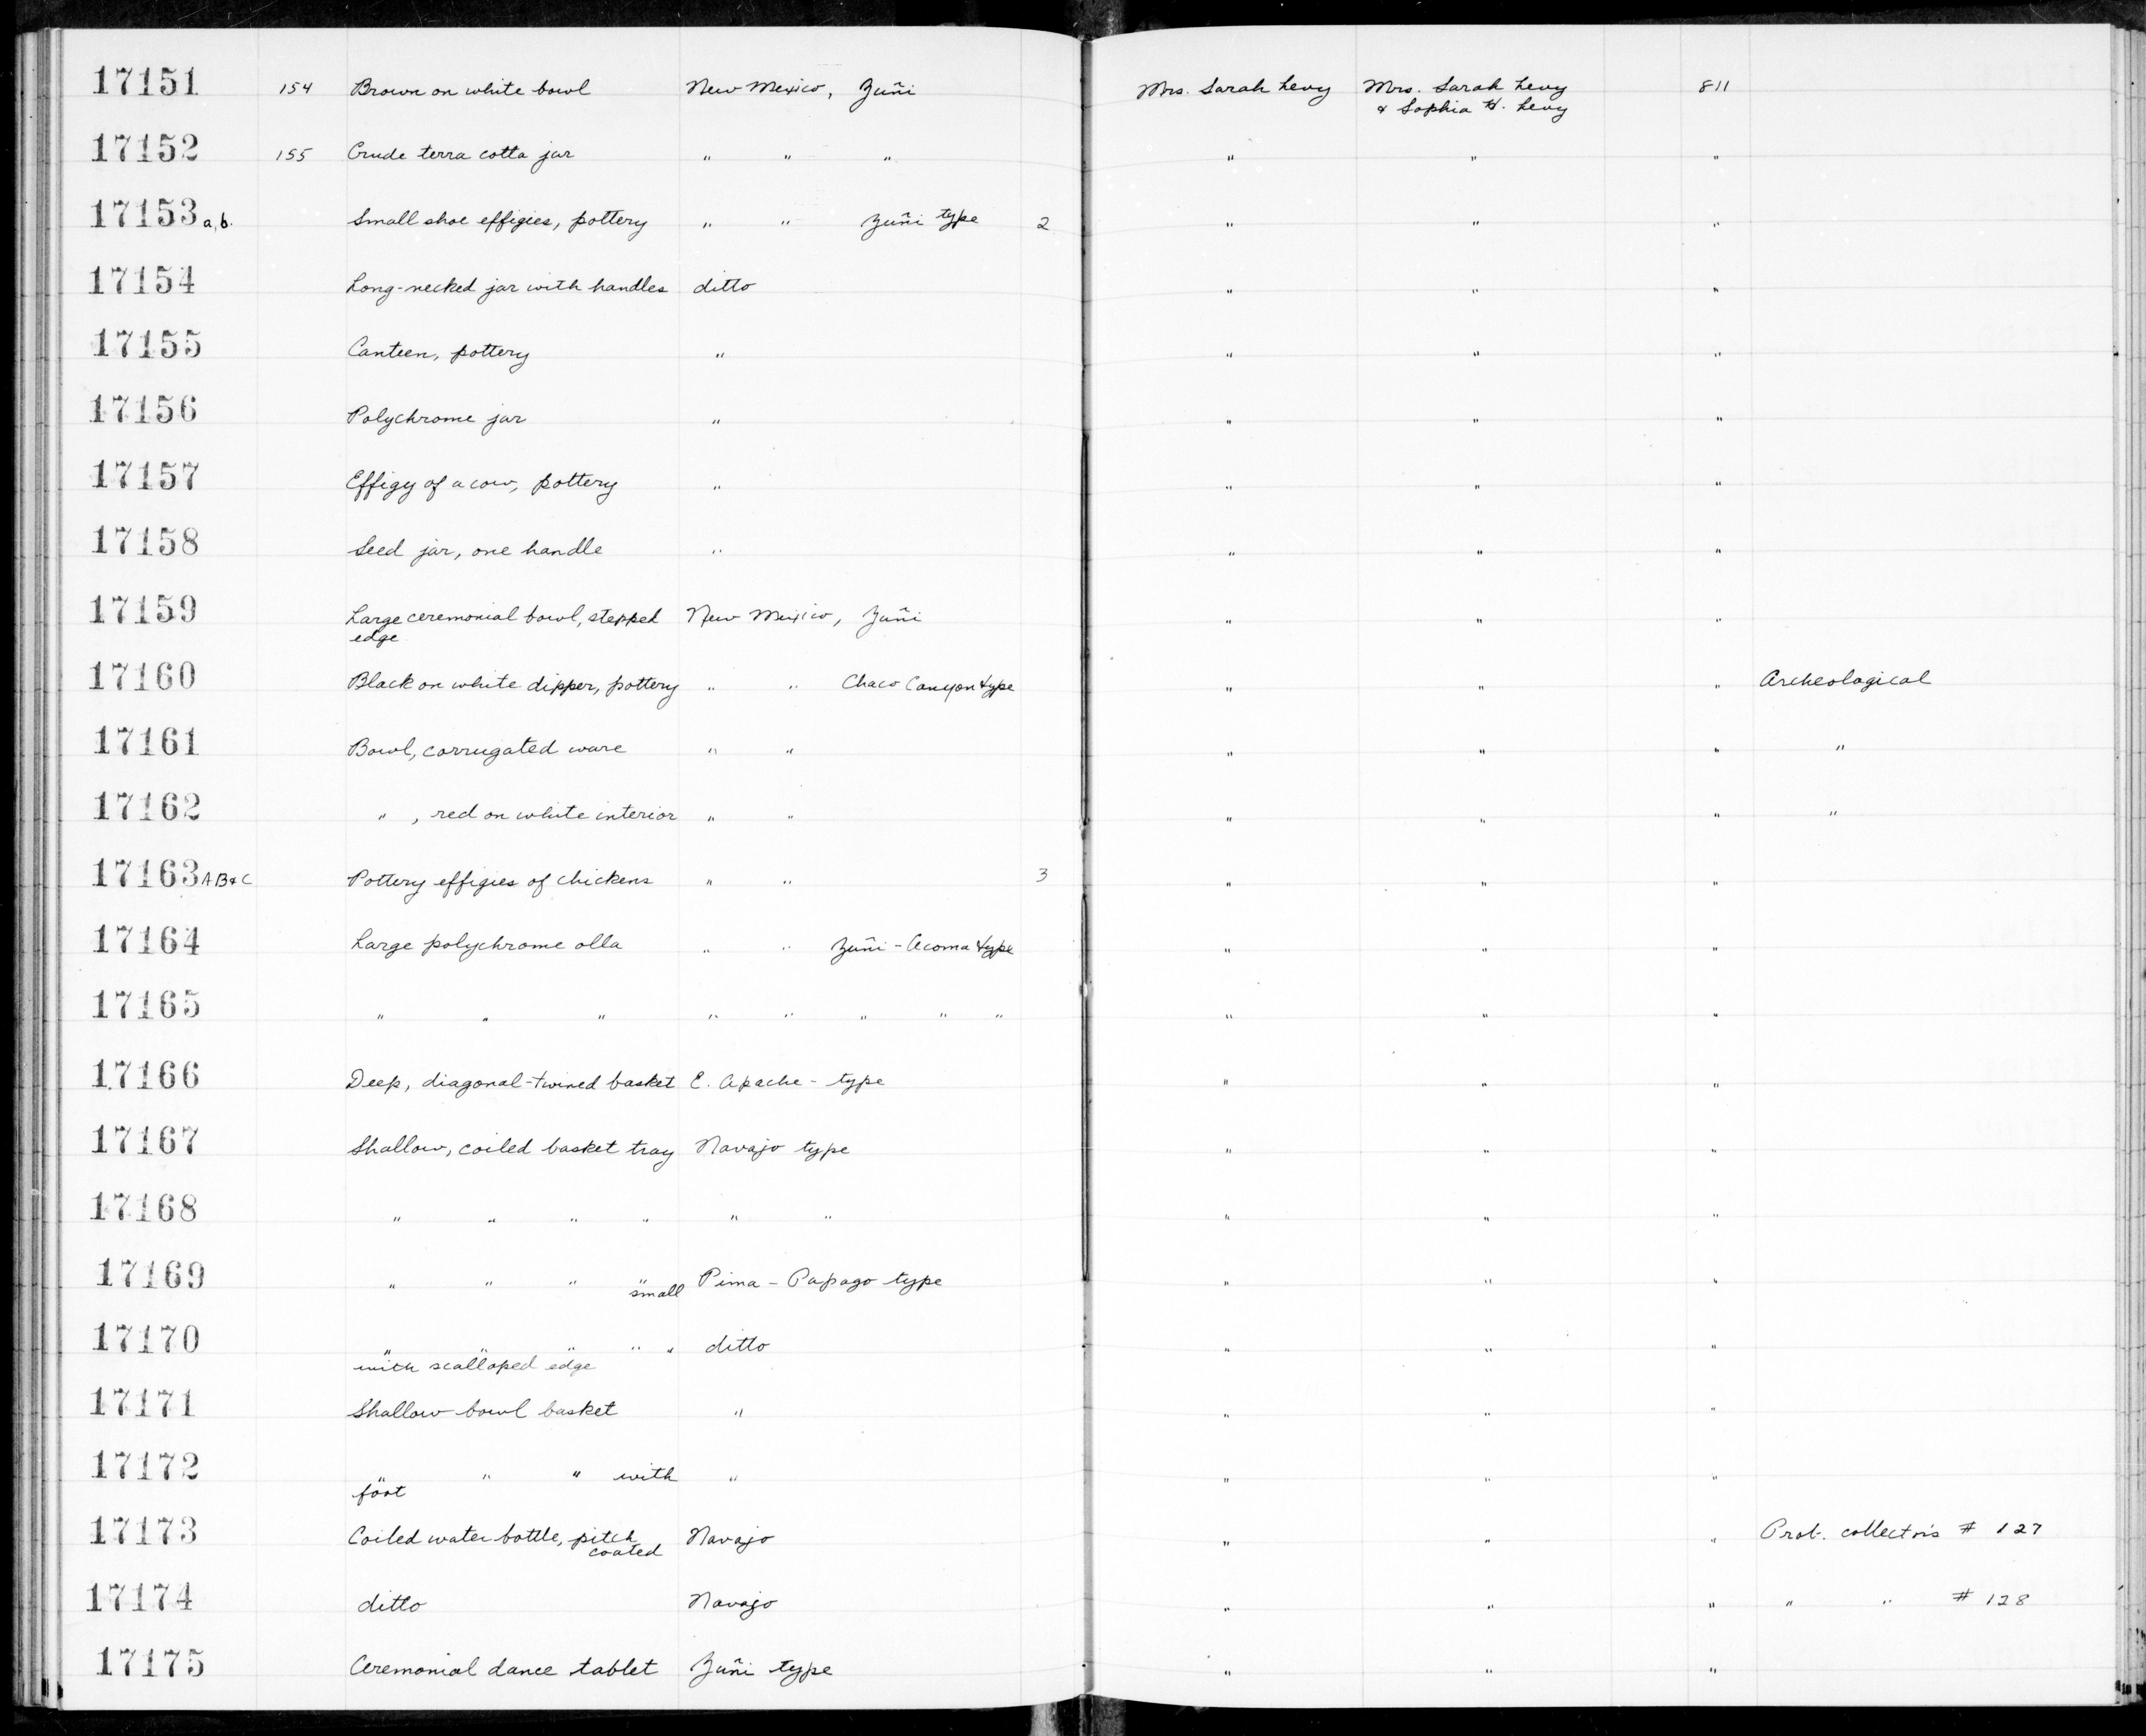 17151 154 Brown on white bowl New Mexico, Zuñi Mrs. Sarah Levy Mrs. Sarah Levy 811
& Sophia H. Levy
17152 155 Crude terra cotta jar " " " " " "
17153 a, b. Small shoe effigies, pottery " " Zuñi type 2 " " "
17154 Long-necked jar with handles ditto " " "
17155 Canteen, pottery " " " "
17156 Polychrome jar " " " "
17157 Effigy of a cow, pottery " " " "
17158 Seed jar, one handle " " " "
17159 Large ceremonial bowl, stepped New Mexico, Zuñi " " "
edge
17160 Black on white dipper, pottery " " Chaco Canyon type " " " Archeological
17161 Bowl, corrugated ware " " " " " "
17162 " , red on white interior " " " " " "
17163 A B & C Pottery effigies of chickens " " 3 " " "
17164 Large polychrome olla " " Zuñi - Acoma type " " "
17165 " " " " " " " " " " "
17166 Deep, diagonal-twined basket E. Apache - type " " "
17167 Shallow, coiled basket tray Navajo type " " "
17168 " " " " " " " " "
17169 " " " " Pima - Papago type " " "
small
17170 " " " " " ditto " " "
with scalloped edge
17171 Shallow bowl basket " " " "
17172 " " " with " " " "
foot
17173 Coiled water bottle, pitch Navajo " " " Prob. collector's # 127
coated
17174 ditto Navajo " " " " " # 128
17175 Ceremonial dance tablet Zuñi type " " "